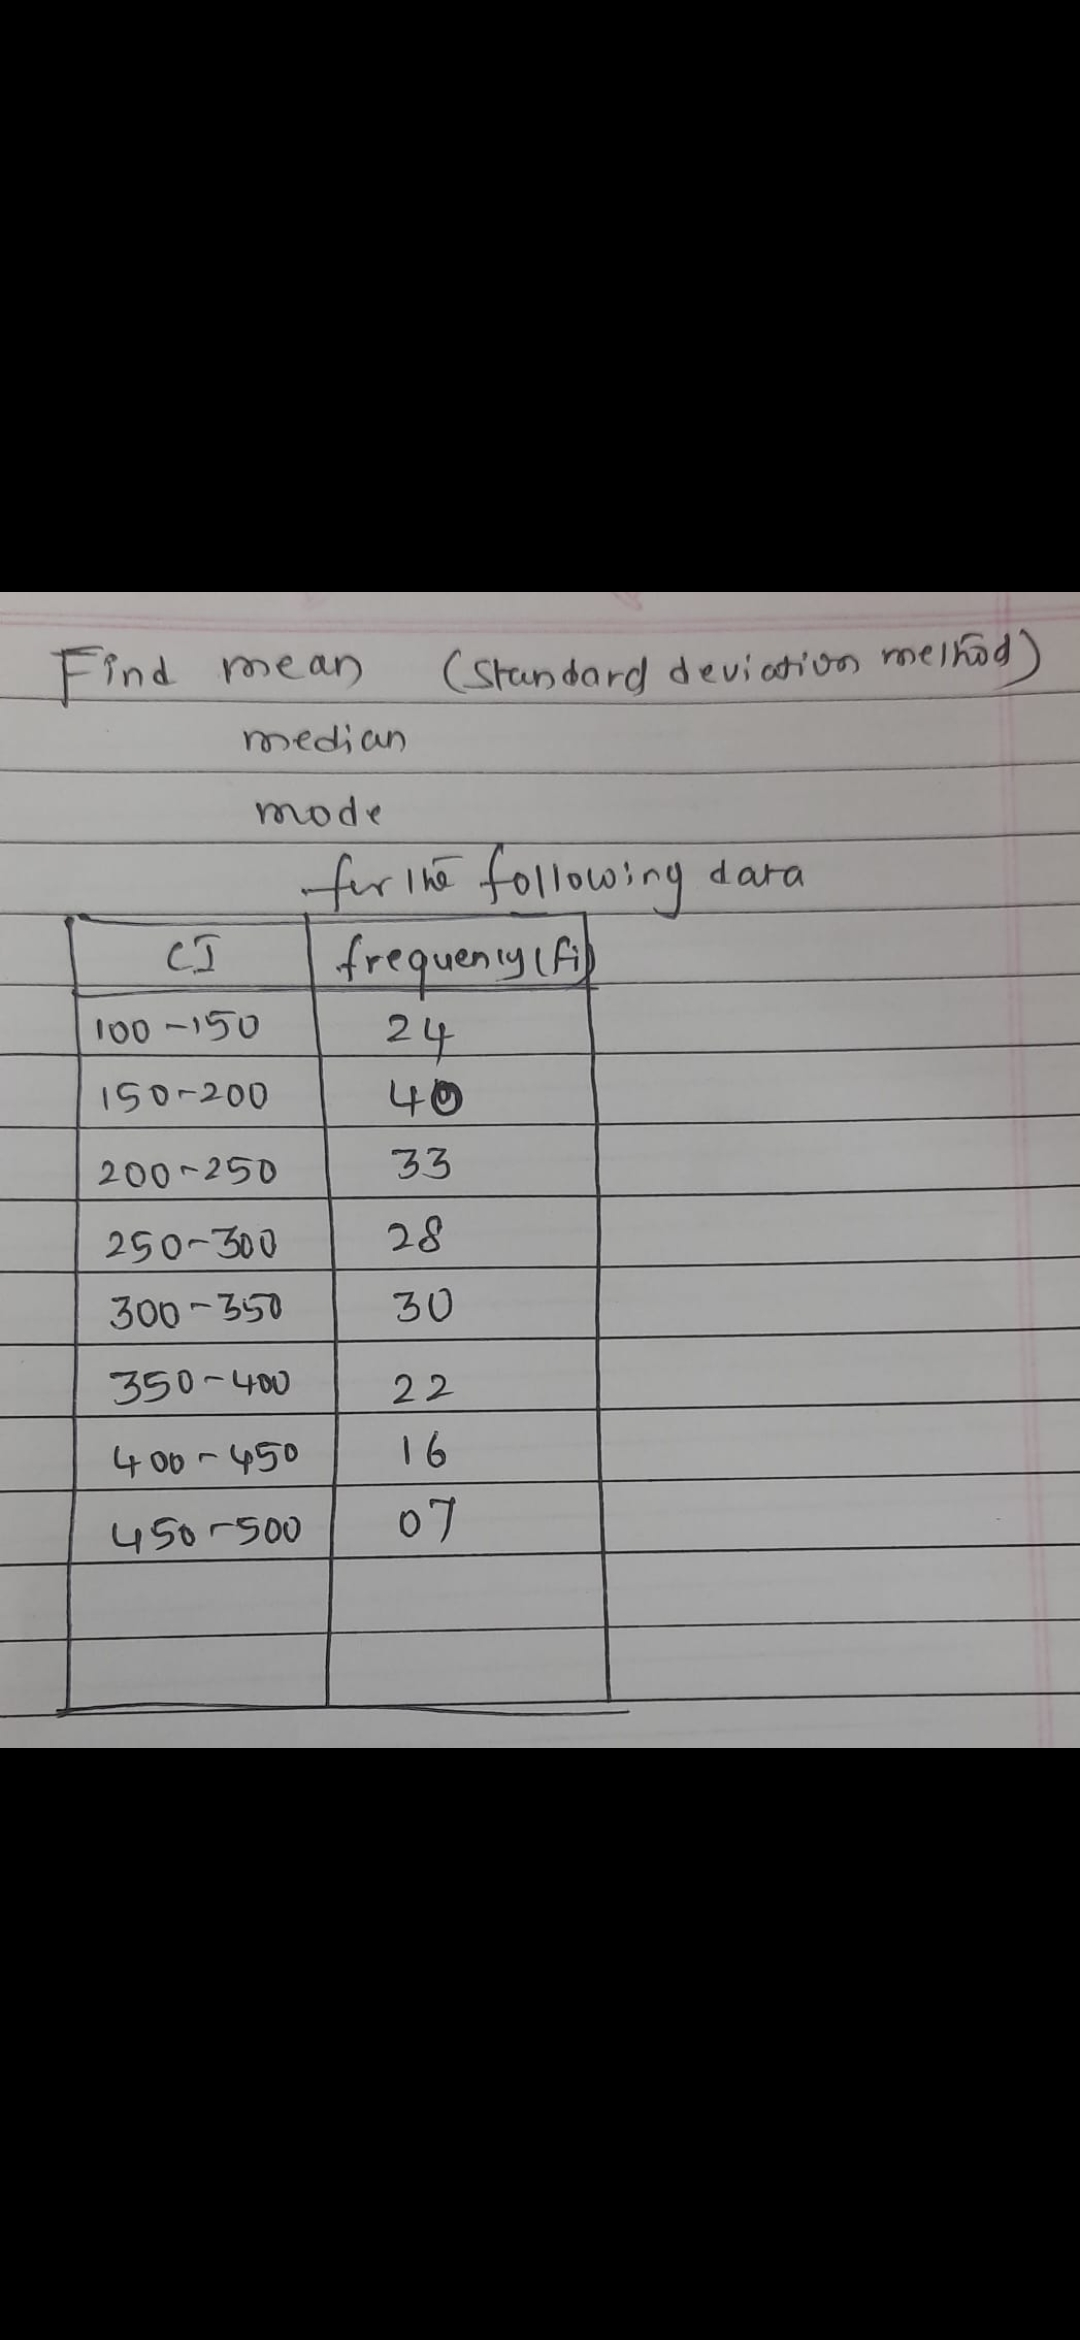 Find mean (Standard deviation method)
median
mode
for the following data
CI frequency (fi)
100-150 24
150-200 40
200-250 33
250-300 28
300-350 30
350-400 22
400-450 16
450-500 07